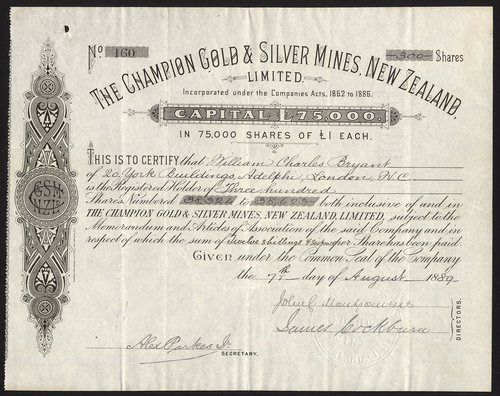 No 160
300 Shares
THE CHAMPION GOLD & SILVER MINES, NEW ZEALAND,
LIMITED.
Incorporated under the Companies Acts, 1862 to 1886.
CAPITAL £75,000.
IN 75,000 SHARES OF £1 EACH.
THIS IS TO CERTIFY that William Charles Bryant
of 20 York Buildings, Adelphi, London, W.C.
is the Registered Holder of Three hundred
Shares Numbered to both inclusive of and in
THE CHAMPION GOLD & SILVER MINES, NEW ZEALAND, LIMITED, subject to the
Memorandum and Articles of Association of the said Company and in
respect of which the sum of Twelve shillings & per Share has been paid.
GIVEN under the Common Seal of the Company
the 7th day of August 1889
John C
James Cockburn
DIRECTORS.
Alex Parkes Jr
SECRETARY.